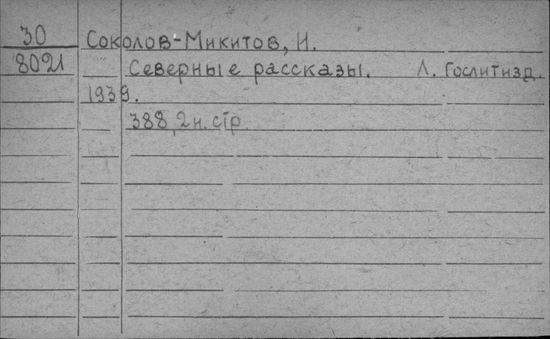 30 Соколов-Микитов, И.
8021 Северные рассказы. Л. Гослитизд.
1939.
388, 2 н. стр.